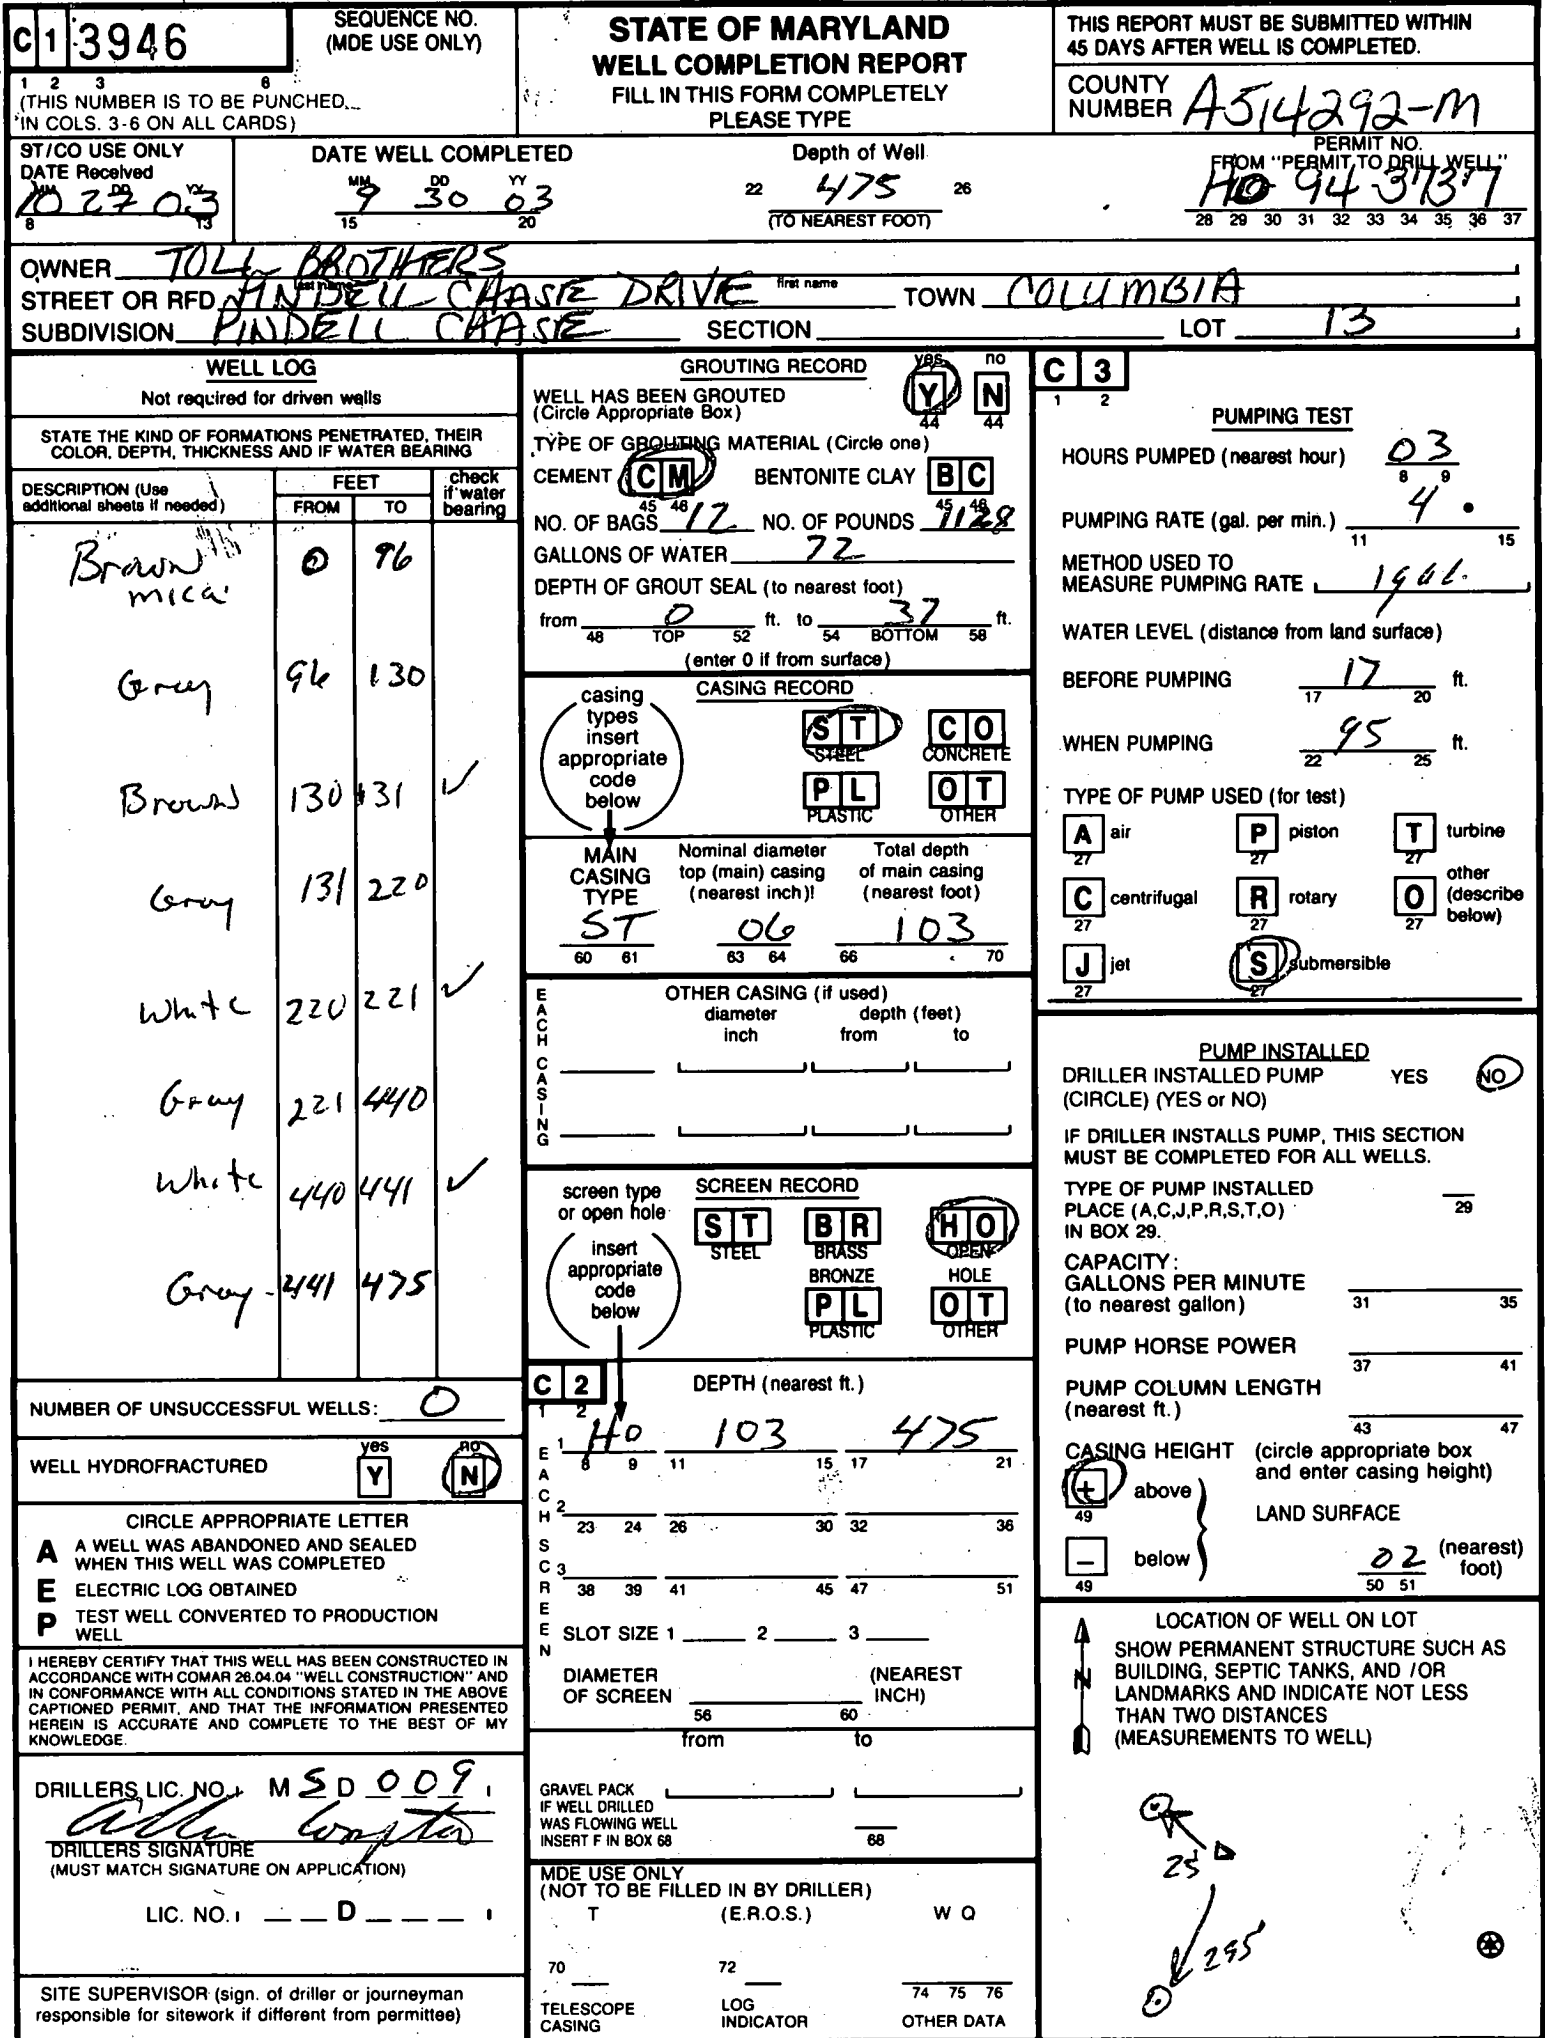 C 1 3946
SEQUENCE NO.
(MDE USE ONLY)
1 2 3 6
(THIS NUMBER IS TO BE PUNCHED
IN COLS. 3-6 ON ALL CARDS)
STATE OF MARYLAND
WELL COMPLETION REPORT
FILL IN THIS FORM COMPLETELY
PLEASE TYPE
THIS REPORT MUST BE SUBMITTED WITHIN
45 DAYS AFTER WELL IS COMPLETED.
COUNTY
NUMBER A514292-M
ST/CO USE ONLY
DATE Received
MM DD YY
10 27 03
8 13
DATE WELL COMPLETED
MM DD YY
9 30 03
15 20
Depth of Well
22 475 26
(TO NEAREST FOOT)
PERMIT NO.
FROM "PERMIT TO DRILL WELL"
HO 94 3737
28 29 30 31 32 33 34 35 36 37
OWNER TOLL BROTHERS
last name first name
STREET OR RFD PINDELL CHASE DRIVE TOWN COLUMBIA
SUBDIVISION PINDELL CHASE SECTION LOT 13
WELL LOG
Not required for driven wells
STATE THE KIND OF FORMATIONS PENETRATED, THEIR
COLOR, DEPTH, THICKNESS AND IF WATER BEARING
DESCRIPTION (Use
additional sheets if needed)
FEET
FROM TO
check
if water
bearing
Brown 0 96
mica
Gray 96 130
Brown 130 131 ✓
Gray 131 220
White 220 221 ✓
Gray 221 440
White 440 441 ✓
Gray 441 475
NUMBER OF UNSUCCESSFUL WELLS: 0
WELL HYDROFRACTURED
yes no
Y N
CIRCLE APPROPRIATE LETTER
A A WELL WAS ABANDONED AND SEALED
WHEN THIS WELL WAS COMPLETED
E ELECTRIC LOG OBTAINED
P TEST WELL CONVERTED TO PRODUCTION
WELL
I HEREBY CERTIFY THAT THIS WELL HAS BEEN CONSTRUCTED IN
ACCORDANCE WITH COMAR 26.04.04 "WELL CONSTRUCTION" AND
IN CONFORMANCE WITH ALL CONDITIONS STATED IN THE ABOVE
CAPTIONED PERMIT, AND THAT THE INFORMATION PRESENTED
HEREIN IS ACCURATE AND COMPLETE TO THE BEST OF MY
KNOWLEDGE.
DRILLERS LIC. NO. M S D 009
DRILLERS SIGNATURE
(MUST MATCH SIGNATURE ON APPLICATION)
LIC. NO. D
SITE SUPERVISOR (sign. of driller or journeyman
responsible for sitework if different from permittee)
GROUTING RECORD
yes no
WELL HAS BEEN GROUTED Y N
(Circle Appropriate Box)
44 44
TYPE OF GROUTING MATERIAL (Circle one)
CEMENT C M BENTONITE CLAY B C
45 46 45 46
NO. OF BAGS 12 NO. OF POUNDS 1128
GALLONS OF WATER 72
DEPTH OF GROUT SEAL (to nearest foot)
from 0 ft. to 37 ft.
48 TOP 52 54 BOTTOM 58
(enter 0 if from surface)
CASING RECORD
casing
types
insert
appropriate
code
below
S T C O
STEEL CONCRETE
P L O T
PLASTIC OTHER
MAIN
CASING
TYPE
Nominal diameter
top (main) casing
(nearest inch)!
Total depth
of main casing
(nearest foot)
ST 06 103
60 61 63 64 66 70
EACH CASING
OTHER CASING (if used)
diameter depth (feet)
inch from to
SCREEN RECORD
screen type
or open hole
insert
appropriate
code
below
S T B R H O
STEEL BRASS OPEN
BRONZE HOLE
P L O T
PLASTIC OTHER
C 2
1 2
DEPTH (nearest ft.)
EACH SCREEN
1 HO 103 475
8 9 11 15 17 21
2
23 24 26 30 32 36
3
38 39 41 45 47 51
SLOT SIZE 1 2 3
DIAMETER
OF SCREEN
(NEAREST
INCH)
56 60
from to
GRAVEL PACK
IF WELL DRILLED
WAS FLOWING WELL
INSERT F IN BOX 68
68
MDE USE ONLY
(NOT TO BE FILLED IN BY DRILLER)
T (E.R.O.S.) W Q
70 72 74 75 76
TELESCOPE
CASING
LOG
INDICATOR
OTHER DATA
C 3
1 2
PUMPING TEST
HOURS PUMPED (nearest hour) 03
8 9
PUMPING RATE (gal. per min.) 4 .
11 15
METHOD USED TO
MEASURE PUMPING RATE
WATER LEVEL (distance from land surface)
BEFORE PUMPING 17 ft.
17 20
WHEN PUMPING 95 ft.
22 25
TYPE OF PUMP USED (for test)
A air P piston T turbine
27 27 27
C centrifugal R rotary O other
(describe
below)
27 27 27
J jet S submersible
27 27
PUMP INSTALLED
DRILLER INSTALLED PUMP YES NO
(CIRCLE) (YES or NO)
IF DRILLER INSTALLS PUMP, THIS SECTION
MUST BE COMPLETED FOR ALL WELLS.
TYPE OF PUMP INSTALLED
PLACE (A,C,J,P,R,S,T,O)
IN BOX 29.
29
CAPACITY:
GALLONS PER MINUTE
(to nearest gallon)
31 35
PUMP HORSE POWER
37 41
PUMP COLUMN LENGTH
(nearest ft.)
43 47
CASING HEIGHT (circle appropriate box
and enter casing height)
+ above
49
LAND SURFACE
− below
49
02 (nearest)
foot)
50 51
LOCATION OF WELL ON LOT
SHOW PERMANENT STRUCTURE SUCH AS
BUILDING, SEPTIC TANKS, AND /OR
LANDMARKS AND INDICATE NOT LESS
THAN TWO DISTANCES
(MEASUREMENTS TO WELL)
N
25
295